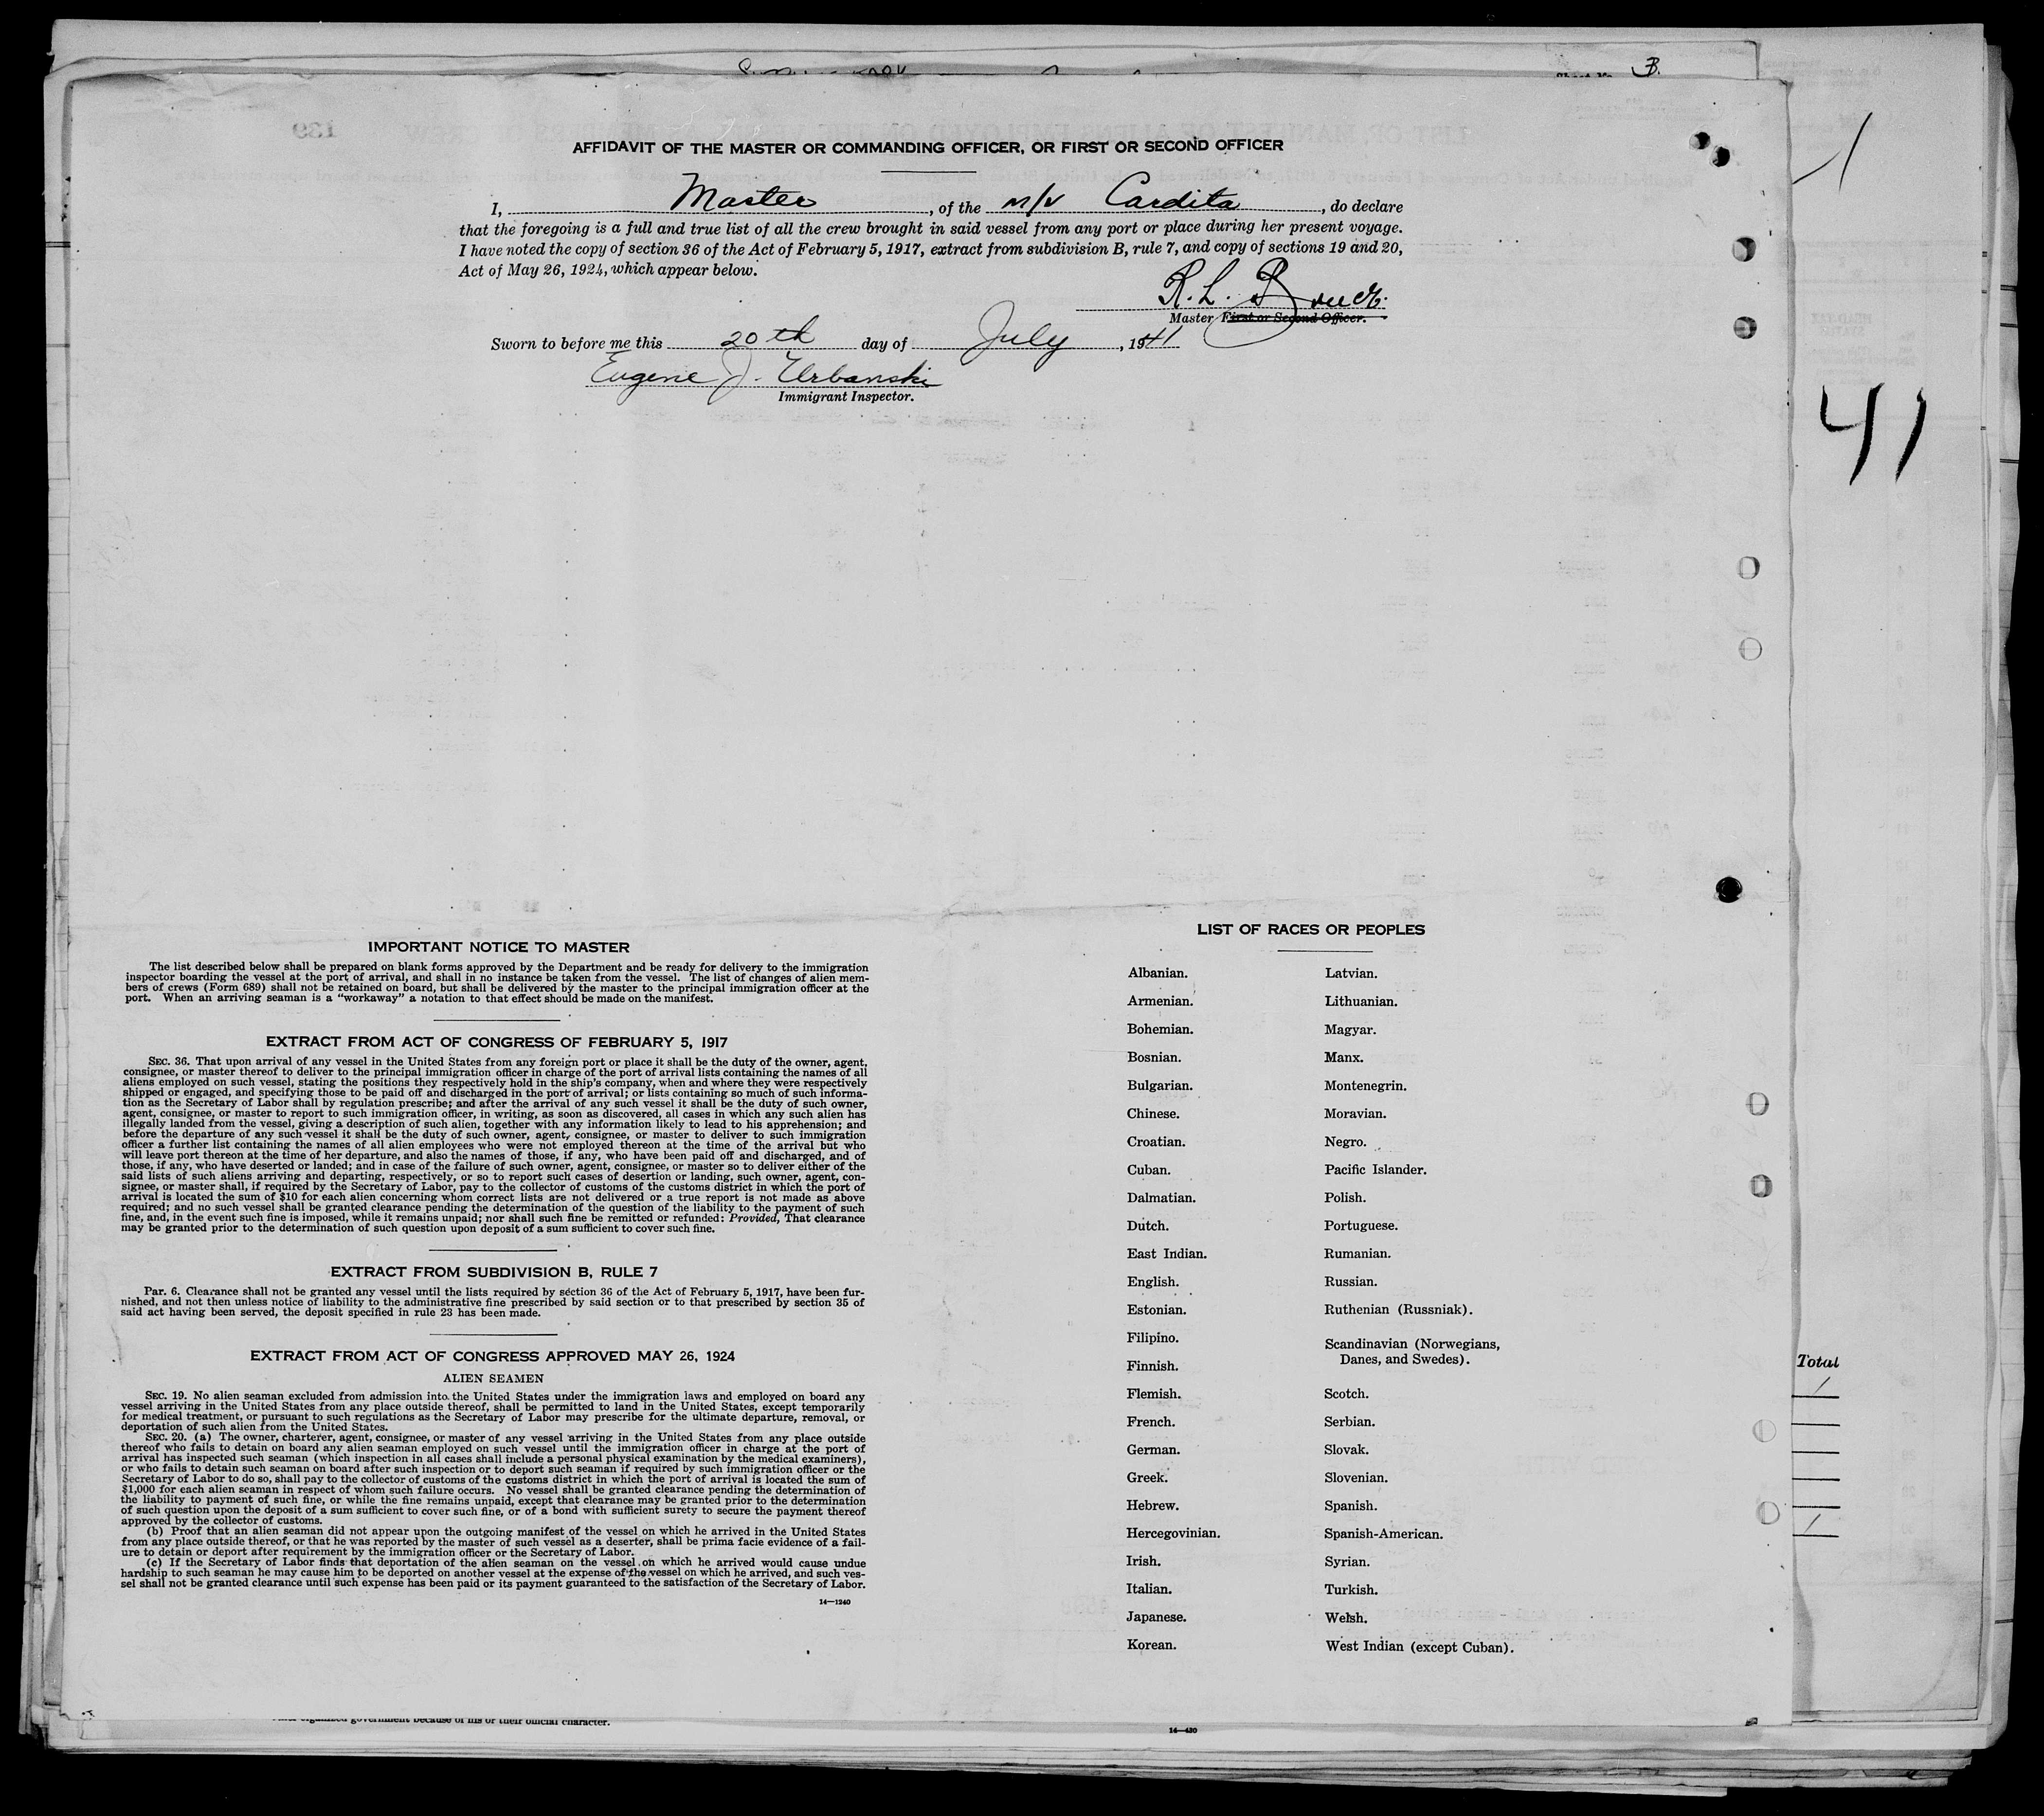 B.
AFFIDAVIT OF THE MASTER OR COMMANDING OFFICER, OR FIRST OR SECOND OFFICER
I, Master, of the m/v Cardita, do declare
that the foregoing is a full and true list of all the crew brought in said vessel from any port or place during her present voyage.
I have noted the copy of section 36 of the Act of February 5, 1917, extract from subdivision B, rule 7, and copy of sections 19 and 20,
Act of May 26, 1924, which appear below.
R. L.
Master First or Second Officer.
Sworn to before me this 20th day of July, 1941
Eugene J. Urbanski
Immigrant Inspector.
41
IMPORTANT NOTICE TO MASTER
The list described below shall be prepared on blank forms approved by the Department and be ready for delivery to the immigration
inspector boarding the vessel at the port of arrival, and shall in no instance be taken from the vessel. The list of changes of alien mem-
bers of crews (Form 689) shall not be retained on board, but shall be delivered by the master to the principal immigration officer at the
port. When an arriving seaman is a "workaway" a notation to that effect should be made on the manifest.
EXTRACT FROM ACT OF CONGRESS OF FEBRUARY 5, 1917
SEC. 36. That upon arrival of any vessel in the United States from any foreign port or place it shall be the duty of the owner, agent,
consignee, or master thereof to deliver to the principal immigration officer in charge of the port of arrival lists containing the names of all
aliens employed on such vessel, stating the positions they respectively hold in the ship's company, when and where they were respectively
shipped or engaged, and specifying those to be paid off and discharged in the port of arrival; or lists containing so much of such informa-
tion as the Secretary of Labor shall by regulation prescribe; and after the arrival of any such vessel it shall be the duty of such owner,
agent, consignee, or master to report to such immigration officer, in writing, as soon as discovered, all cases in which any such alien has
illegally landed from the vessel, giving a description of such alien, together with any information likely to lead to his apprehension; and
before the departure of any such vessel it shall be the duty of such owner, agent, consignee, or master to deliver to such immigration
officer a further list containing the names of all alien employees who were not employed thereon at the time of the arrival but who
will leave port thereon at the time of her departure, and also the names of those, if any, who have been paid off and discharged, and of
those, if any, who have deserted or landed; and in case of the failure of such owner, agent, consignee, or master so to deliver either of the
said lists of such aliens arriving and departing, respectively, or so to report such cases of desertion or landing, such owner, agent, con-
signee, or master shall, if required by the Secretary of Labor, pay to the collector of customs of the customs district in which the port of
arrival is located the sum of $10 for each alien concerning whom correct lists are not delivered or a true report is not made as above
required; and no such vessel shall be granted clearance pending the determination of the question of the liability to the payment of such
fine, and, in the event such fine is imposed, while it remains unpaid; nor shall such fine be remitted or refunded: Provided, That clearance
may be granted prior to the determination of such question upon deposit of a sum sufficient to cover such fine.
EXTRACT FROM SUBDIVISION B, RULE 7
Par. 6. Clearance shall not be granted any vessel until the lists required by section 36 of the Act of February 5, 1917, have been fur-
nished, and not then unless notice of liability to the administrative fine prescribed by said section or to that prescribed by section 35 of
said act having been served, the deposit specified in rule 23 has been made.
EXTRACT FROM ACT OF CONGRESS APPROVED MAY 26, 1924
ALIEN SEAMEN
SEC. 19. No alien seaman excluded from admission into the United States under the immigration laws and employed on board any
vessel arriving in the United States from any place outside thereof, shall be permitted to land in the United States, except temporarily
for medical treatment, or pursuant to such regulations as the Secretary of Labor may prescribe for the ultimate departure, removal, or
deportation of such alien from the United States.
SEC. 20. (a) The owner, charterer, agent, consignee, or master of any vessel arriving in the United States from any place outside
thereof who fails to detain on board any alien seaman employed on such vessel until the immigration officer in charge at the port of
arrival has inspected such seaman (which inspection in all cases shall include a personal physical examination by the medical examiners),
or who fails to detain such seaman on board after such inspection or to deport such seaman if required by such immigration officer or the
Secretary of Labor to do so, shall pay to the collector of customs of the customs district in which the port of arrival is located the sum of
$1,000 for each alien seaman in respect of whom such failure occurs. No vessel shall be granted clearance pending the determination of
the liability to payment of such fine, or while the fine remains unpaid, except that clearance may be granted prior to the determination
of such question upon the deposit of a sum sufficient to cover such fine, or of a bond with sufficient surety to secure the payment thereof
approved by the collector of customs.
(b) Proof that an alien seaman did not appear upon the outgoing manifest of the vessel on which he arrived in the United States
from any place outside thereof, or that he was reported by the master of such vessel as a deserter, shall be prima facie evidence of a fail-
ure to detain or deport after requirement by the immigration officer or the Secretary of Labor.
(c) If the Secretary of Labor finds that deportation of the alien seaman on the vessel on which he arrived would cause undue
hardship to such seaman he may cause him to be deported on another vessel at the expense of the vessel on which he arrived, and such ves-
sel shall not be granted clearance until such expense has been paid or its payment guaranteed to the satisfaction of the Secretary of Labor.
14—1240
LIST OF RACES OR PEOPLES
Albanian.
Armenian.
Bohemian.
Bosnian.
Bulgarian.
Chinese.
Croatian.
Cuban.
Dalmatian.
Dutch.
East Indian.
English.
Estonian.
Filipino.
Finnish.
Flemish.
French.
German.
Greek.
Hebrew.
Hercegovinian.
Irish.
Italian.
Japanese.
Korean.
Latvian.
Lithuanian.
Magyar.
Manx.
Montenegrin.
Moravian.
Negro.
Pacific Islander.
Polish.
Portuguese.
Rumanian.
Russian.
Ruthenian (Russniak).
Scandinavian (Norwegians,
Danes, and Swedes).
Scotch.
Serbian.
Slovak.
Slovenian.
Spanish.
Spanish-American.
Syrian.
Turkish.
Welsh.
West Indian (except Cuban).
Total
1
1
organized government because of his or their official character.
14—430